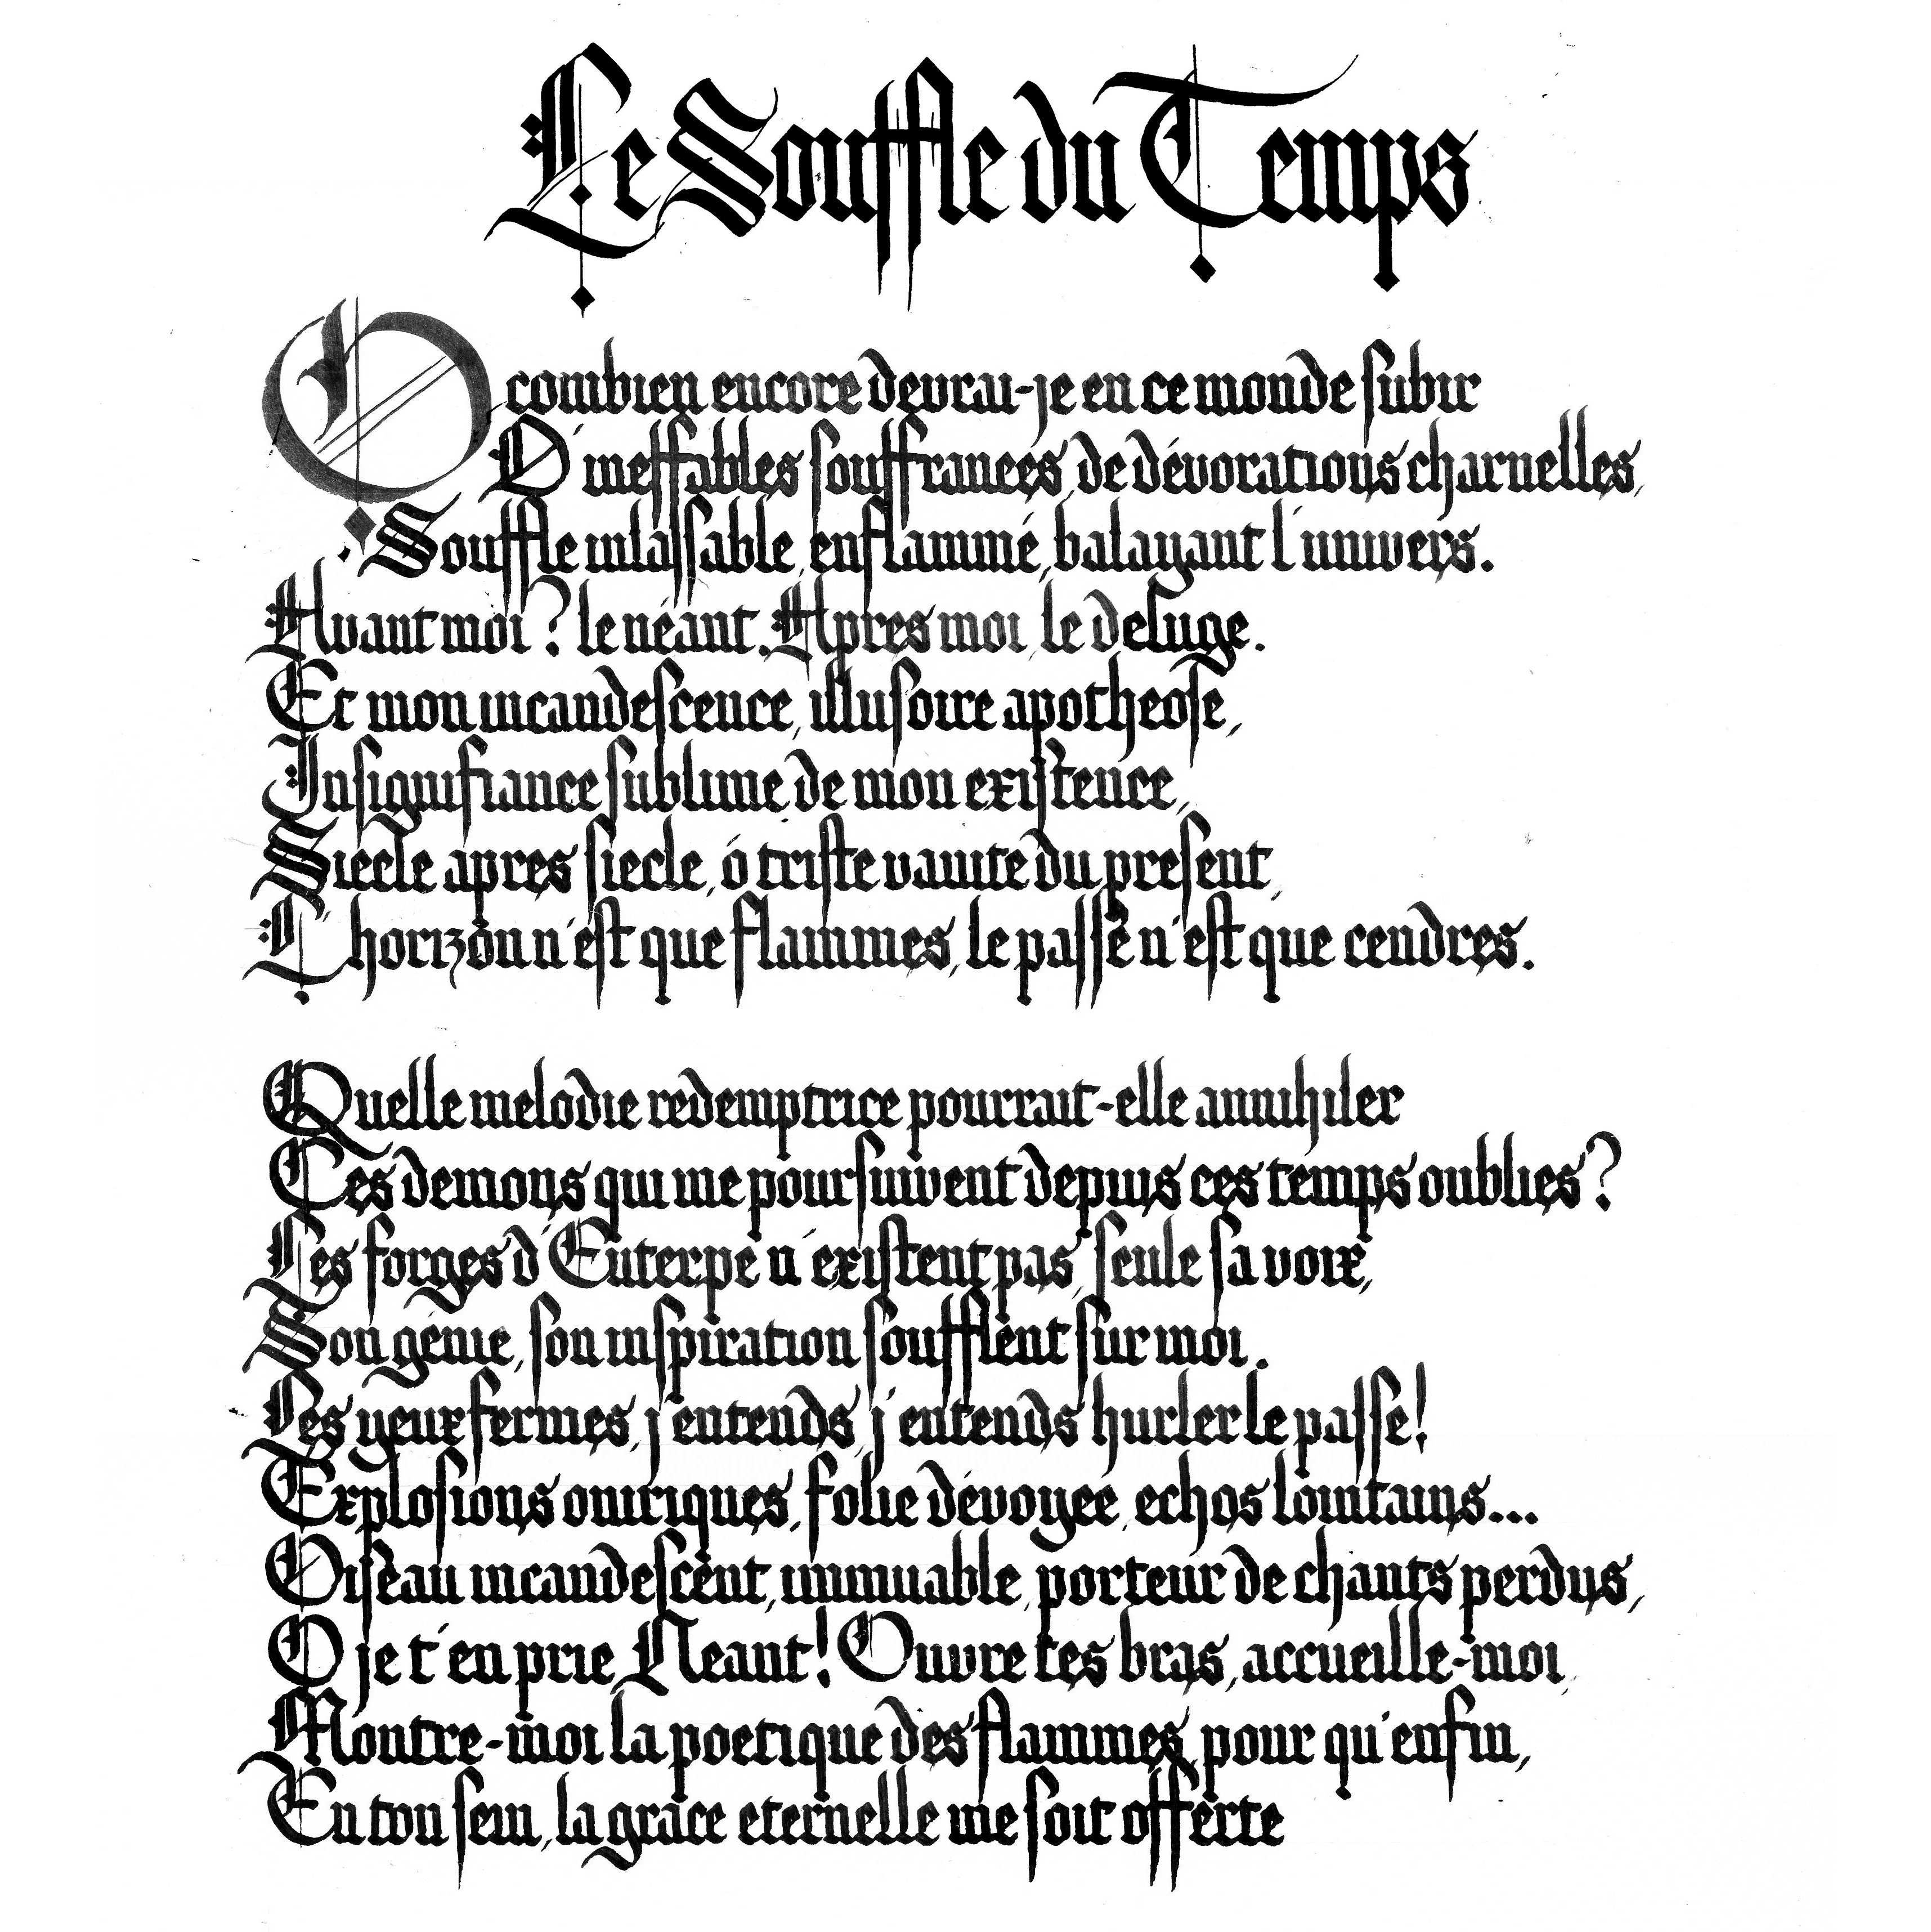 Le Souffle du Temps
O combien encore devrai-je en ce monde subir
D'ineffables souffrances, de dévorations charnelles,
Souffle inlassable, enflammé, balayant l'univers.
Avant moi? le néant. Apres moi, le deluge.
Et mon incandescence, illusoire apotheose,
Insignifiance sublime de mon existence,
Siecle apres siecle, ô triste vanite du present,
L'horizon n'est que flammes, le passé n'est que cendres.
Quelle melodie redemptrice pourrait-elle annihiler
Ces demons qui me poursuivent depuis ces temps oublies?
Les forges d'Euterpe n'existent pas, seule sa voix,
Son génie, son inspiration soufflent sur moi.
Les yeux fermes, j'entends, j'entends hurler le passe!
Explosions oniriques, folie dévoyee, echos lointains...
Oiseau incandescent, immuable, porteur de chants perdus,
O je t'en prie Neant! Ouvre tes bras, accueille-moi,
Montre-moi la poetique des flammes, pour qu'enfin,
En ton sein, la grace eternelle me soit offerte